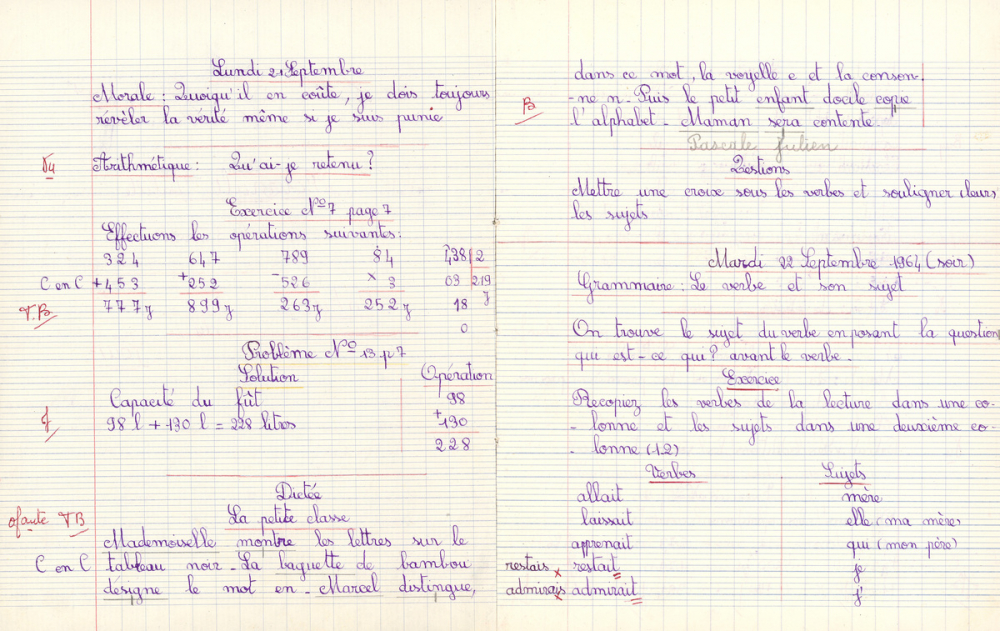 Lundi 21 Septembre
Morale : Quoiqu'il en coûte, je dois toujours
révéler la vérité même si je suis punie
Arithmétique : Qu'ai-je retenu ?
Exercice N°7 page 7
Effectuons les opérations suivantes :
324 647 789 84 438 2
C en C +453 +252 -526 × 3 03 219
T.B 777 899 263 252 18
0
Problème N° 13 p7
Solution Opération
Capacité du fût 98
98 l + 130 l = 228 litres +130
228
Dictée
0faute TB La petite classe
Mademoiselle montre les lettres sur le
C en C tableau noir - La baguette de bambou
désigne le mot en - Marcel distingue,
dans ce mot, la voyelle e et la conson-
B -ne n - Puis le petit enfant docile copie
l'alphabet - Maman sera contente
Pascale Julien
Qestions
Mettre une croix sous les verbes et souligner leurs
les sujets
Mardi 22 Septembre 1964 (soir)
Grammaire : Le verbe et son sujet
On trouve le sujet du verbe en posant la question
qui est-ce qui ? avant le verbe.
Exercice
Recopiez les verbes de la lecture dans une co-
- lonne et les sujets dans une deuxième co-
- lonne (1.2)
Verbes Sujets
allait mère
laissait elle (ma mère)
apprenait qui (mon père)
restais x restait je
admirais x admirait j'